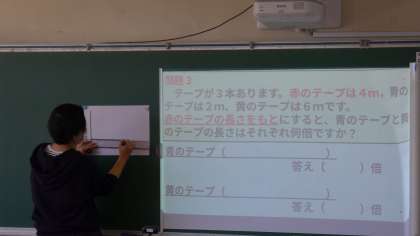 課題3
テープが3本あります。赤のテープは4m，青の
テープは2m、黄のテープは6mです。
赤のテープの長さをもとにすると、青のテープと黄
のテープの長さはそれぞれ何倍ですか？
青のテープ（　　　　　　　　）
答え（　　）倍
黄のテープ（　　　　　　　　）
答え（　　）倍